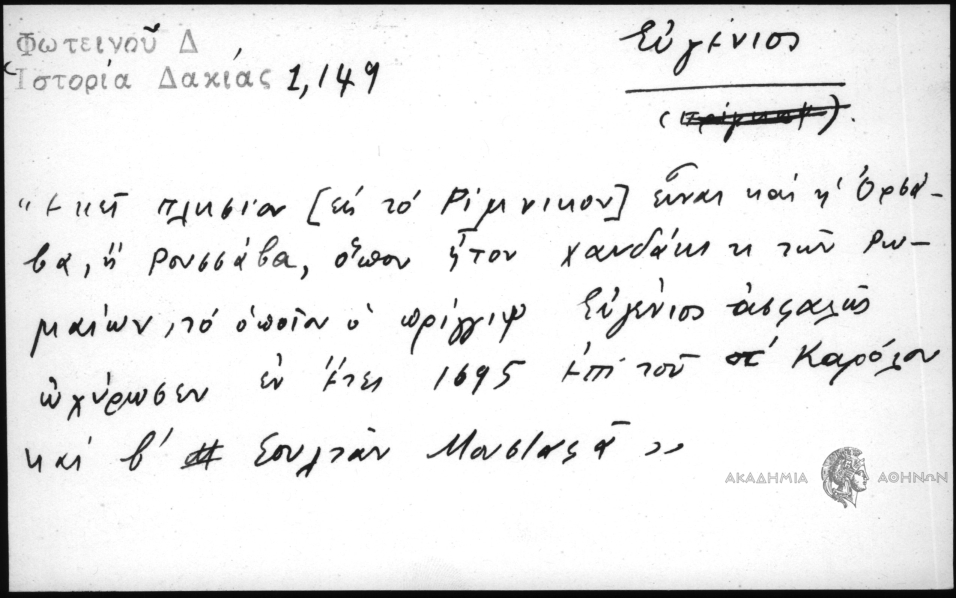 Φωτεινοῦ Δ
Ἱστορία Δακίας 1,149
Εὐγένιος
(πρίγκηψ).
"ἐκεῖ πλησίον [εἰς τό Ρίμνικον] εἶναι καί ἡ Ὀρσά-
βα, ἤ Ρουσσάβα, ὅπου ἦτον χανδάκι τῶν Ρω-
μαίων, τό ὁποῖον ὁ πρίγγιψ Εὐγένιος ἀσφαλῶς
ὠχύρωσεν ἐν ἔτει 1695 ἐπί τοῦ στ' Καρόλου
καί β' Σουλτάν Μουσταφᾶ"
ΑΚΑΔΗΜΙΑ ΑΘΗΝΩΝ